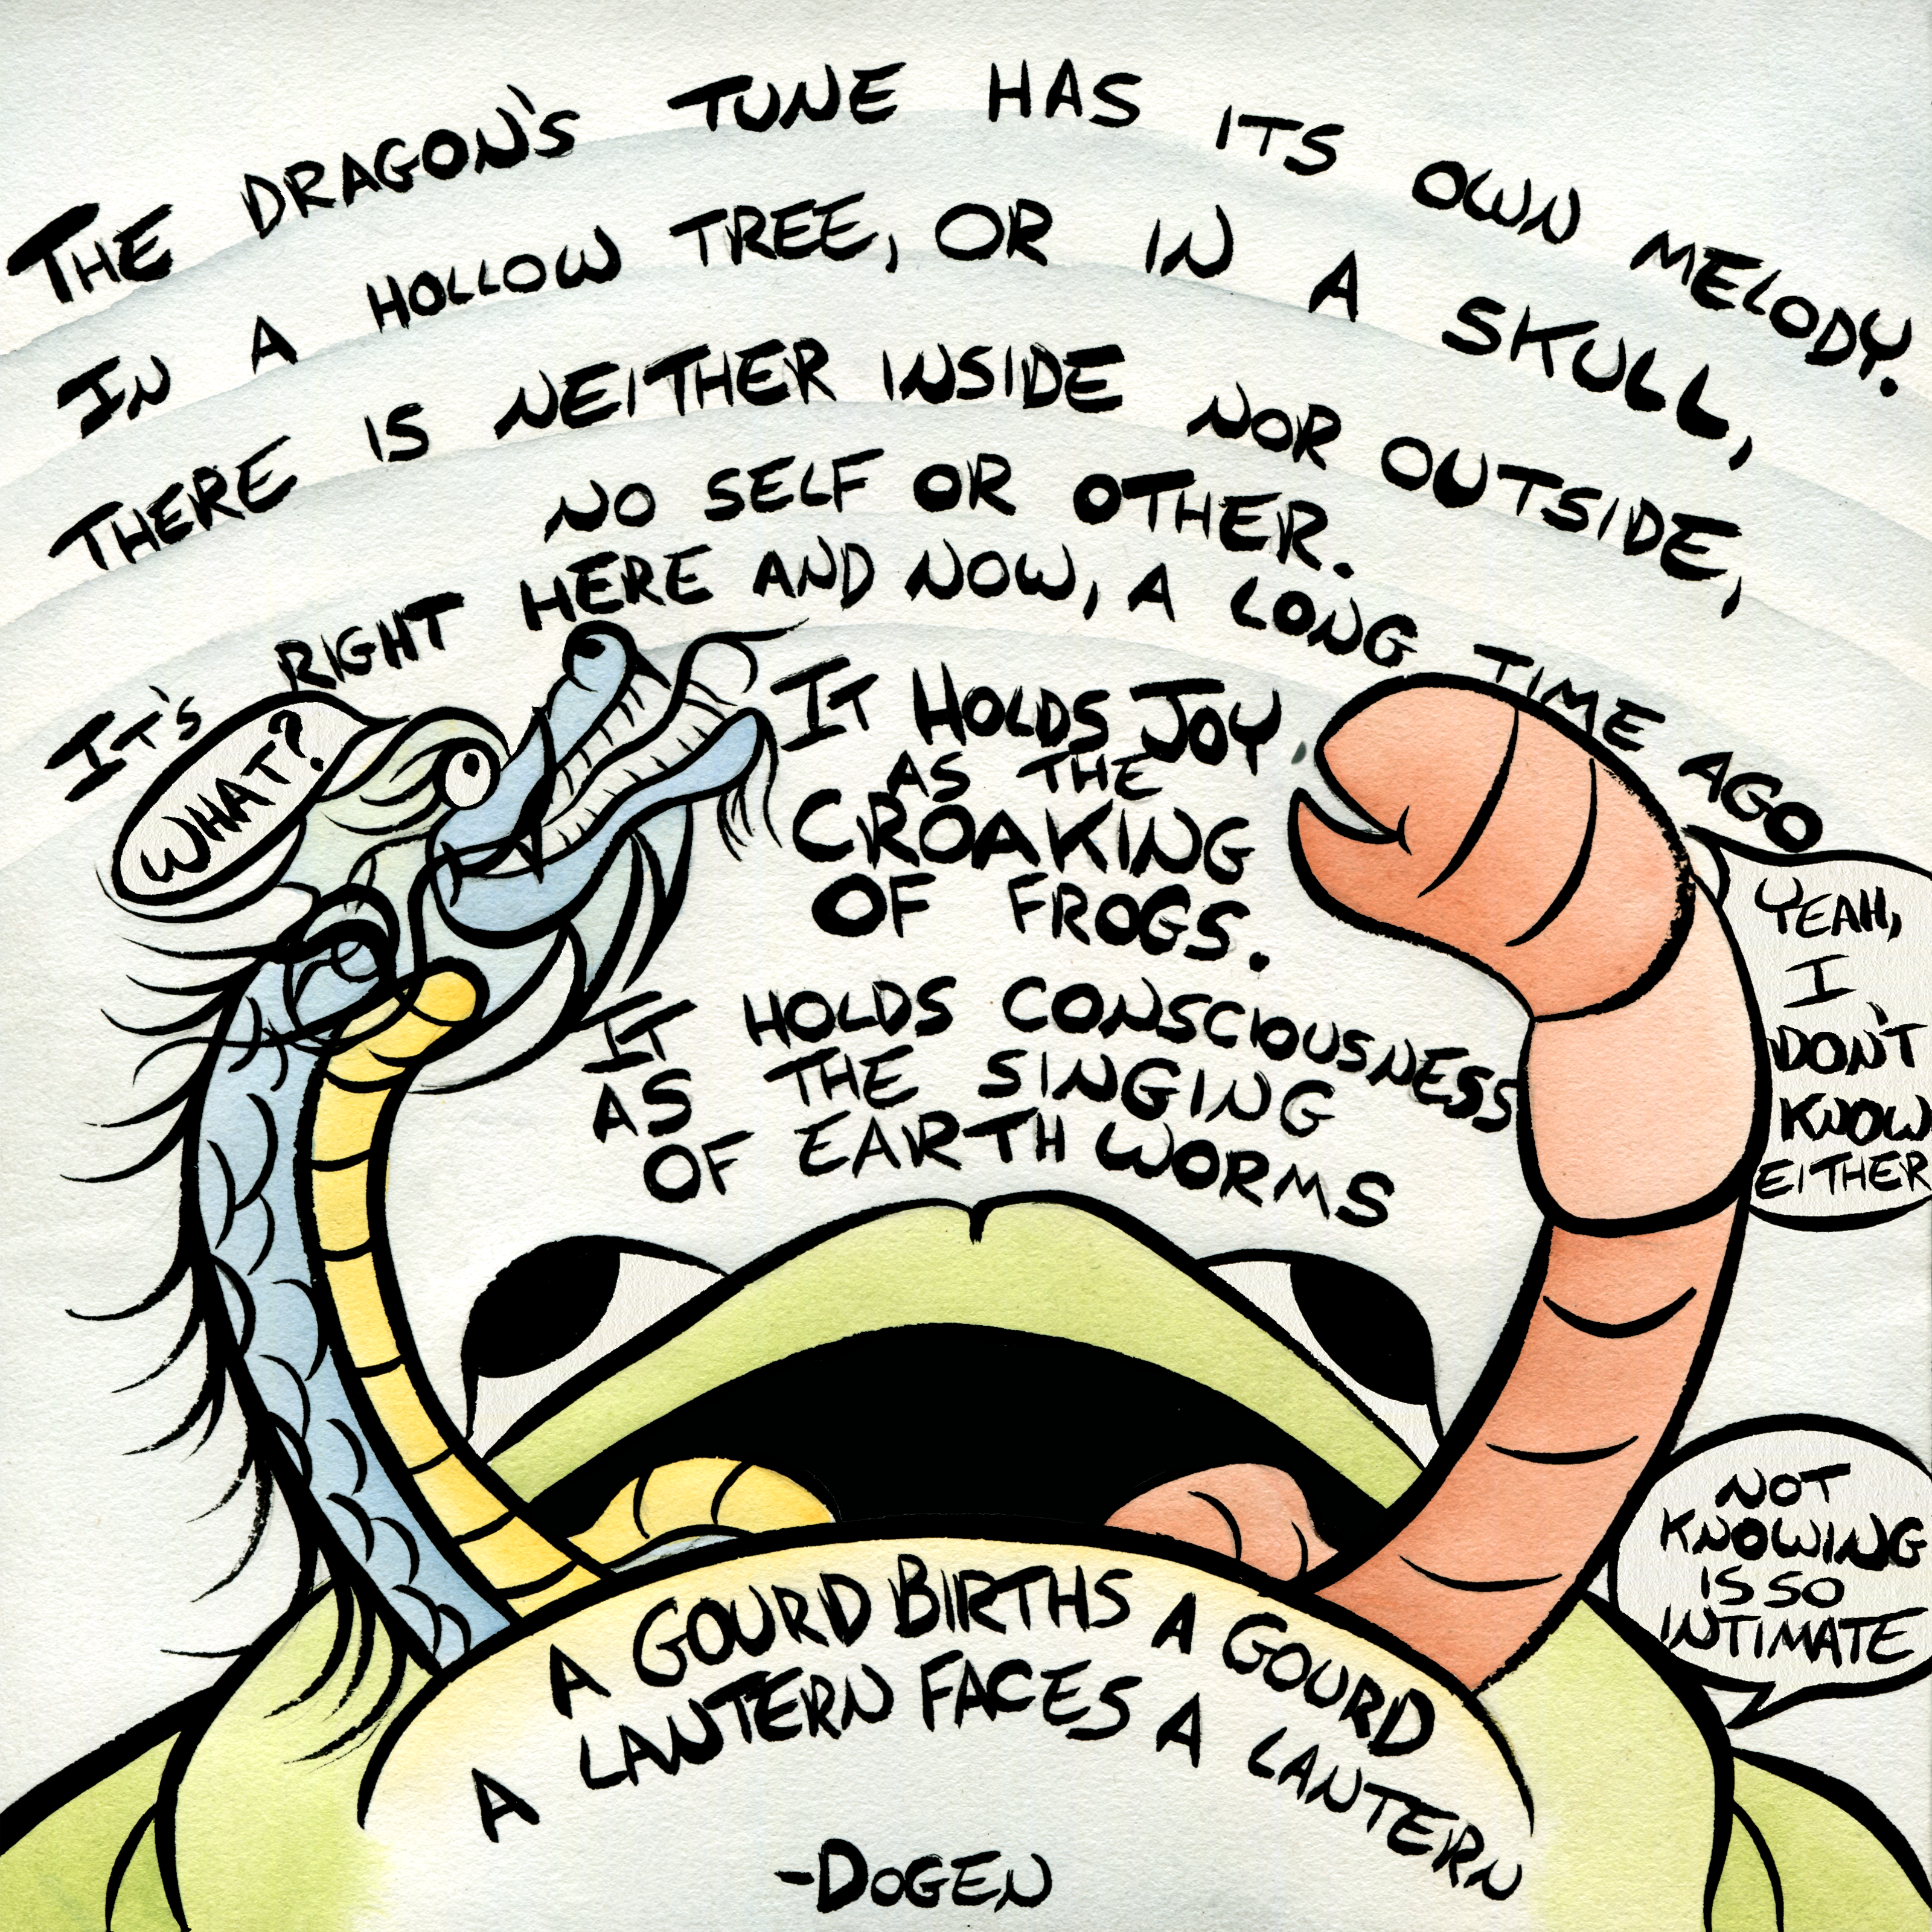 THE DRAGON'S TUNE HAS ITS OWN MELODY.
IN A HOLLOW TREE, OR IN A SKULL,
THERE IS NEITHER INSIDE NOR OUTSIDE,
NO SELF OR OTHER.
IT'S RIGHT HERE AND NOW, A LONG TIME AGO
WHAT?
IT HOLDS JOY
AS THE
CROAKING
OF FROGS.
IT HOLDS CONSCIOUSNESS
AS THE SINGING
OF EARTH WORMS
YEAH,
I
DON'T
KNOW
EITHER
NOT
KNOWING
IS SO
INTIMATE
A GOURD BIRTHS A GOURD
A LANTERN FACES A LANTERN
-DOGEN